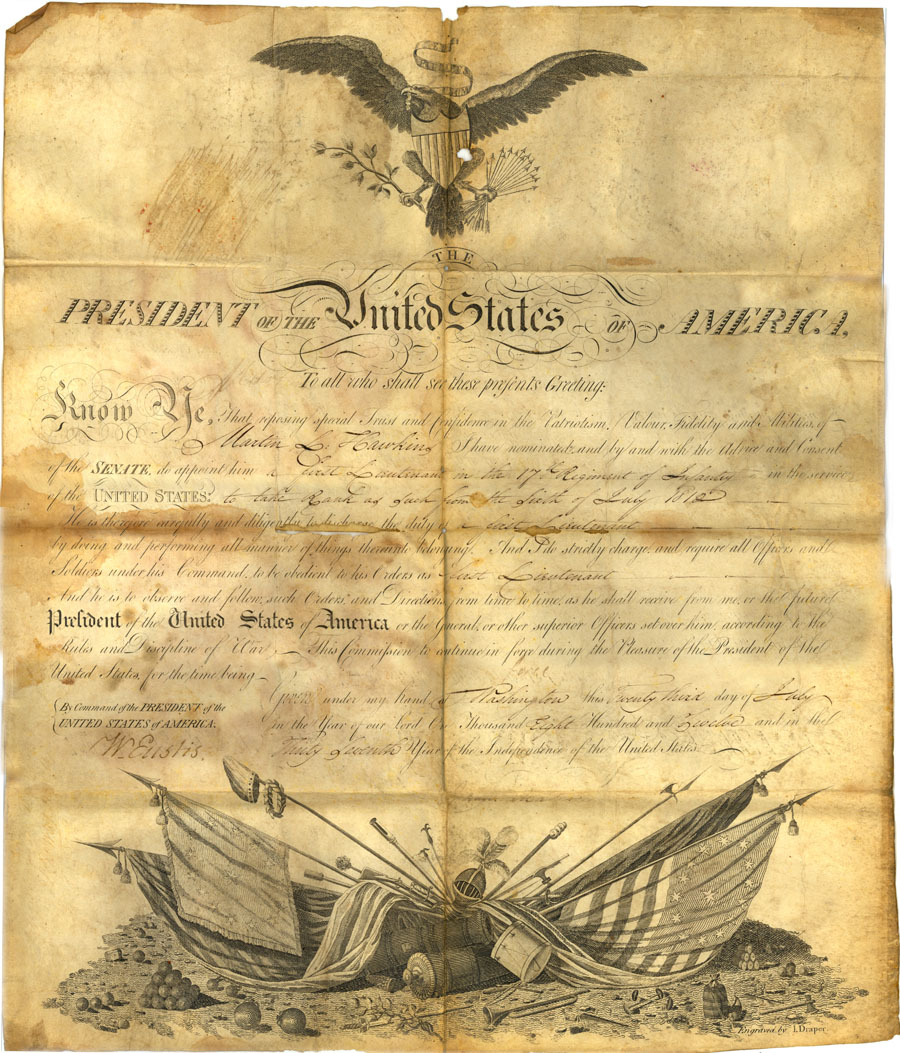 THE
PRESIDENT OF THE United States OF AMERICA,
To all who shall see these presents Greeting:
Know Ye, That reposing special Trust and Confidence in the Patriotism, Valour, Fidelity and Abilities, of
Martin L. Hawkins I have nominated and by and with the Advice and Consent
of the SENATE, do appoint him a First Lieutenant in the 17th Regiment of Infantry in the service
of the UNITED STATES: to take Rank as such from the Sixth of July 1812
He is therefore carefully and diligently to discharge the duty of a first Lieutenant
by doing and performing all manner of things thereunto belonging. And I do strictly charge, and require all Officers and
Soldiers under his Command, to be obedient to his Orders as first Lieutenant
And he is to observe and follow such Orders, and Directions, from time to time, as he shall receive from me, or the future
President of the United States of America or the General, or other superior Officers set over him, according to the
Rules and Discipline of War. This Commission to continue in force during the Pleasure of the President of the
United States, for the time being.
Given under my Hand at Washington this Twenty third day of July
By Command of the PRESIDENT of the
UNITED STATES of AMERICA.
in the Year of our Lord One Thousand Eight Hundred and Twelve and in the
W. Eustis.
Thirty Seventh Year of the Independence of the United States.
Engraved by I. Draper